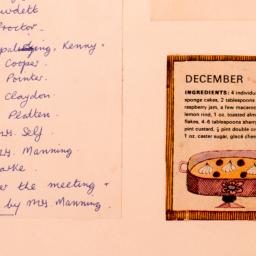 Proctor.
Kenny.
Cooper.
Pointer.
Claydon.
Platten.
Mrs. Self.
Mrs. Manning.
the meeting
by Mrs Manning.
DECEMBER
INGREDIENTS: 4 individu
sponge cakes, 2 tablespoons
raspberry jam, a few macaro
lemon rind, 1 oz. toasted alm
flakes, 4-6 tablespoons sherry
pint custard, ½ pint double cr
1 oz. caster sugar, glacé cher